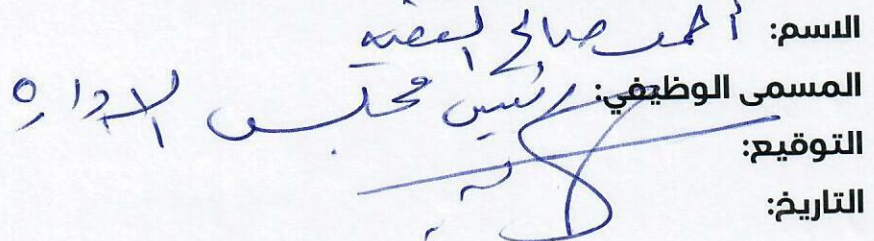 الاسم: أحمد صالح
المسمى الوظيفي: رئيس مجلس الادارة
التوقيع:
التاريخ: